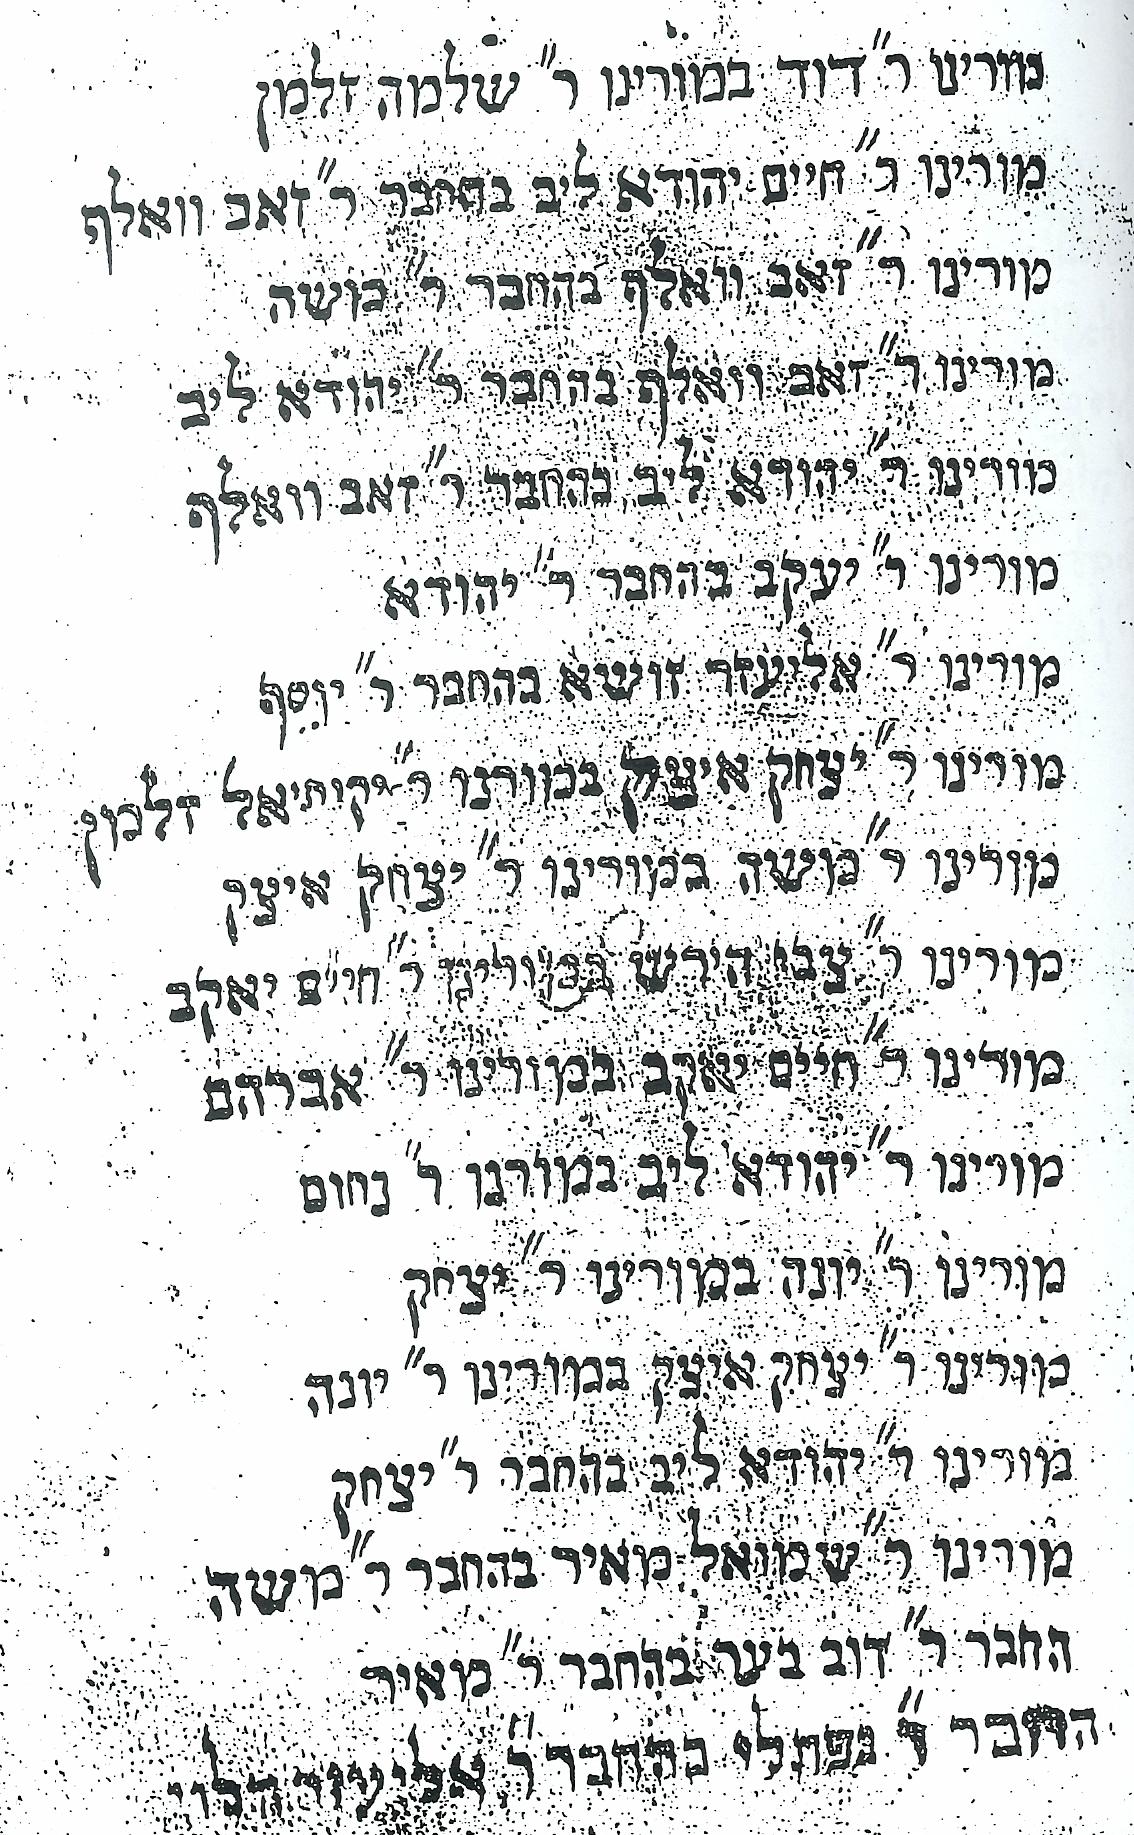 מורינו ר״ דוד במורינו ר״ שלמה זלמן
מורינו ר״ חיים יהודא ליב בהחבר ר״ זאב וואלף
מורינו ר״ זאב וואלף בהחבר ר״ משה
מורינו ר״ זאב וואלף בהחבר ר״ יהודא ליב
מורינו ר״ יהודא ליב בהחבר ר״ זאב וואלף
מורינו ר״ יעקב בהחבר ר״ יהודא
מורינו ר״ אליעזר זושיא בהחבר ר״ יוסף
מורינו ר״ יצחק איציק במורנו ר״ יקותיאל זלמן
מורינו ר״ משה במורינו ר״ יצחק איצק
מורינו ר״ צבי הירש במורינו ר״ חיים יאקב
מורינו ר״ חיים יאקב במורינו ר״ אברהם
מורינו ר״ יהודא ליב במורנו ר״ נחום
מורינו ר״ יונה במורינו ר״ יצחק
מורינו ר״ יצחק איצק במורינו ר״ יונה
מורינו ר״ יהודא ליב בהחבר ר״ יצחק
מורינו ר״ שמואל מאיר בהחבר ר״ משה
החבר ר״ דוב בער בהחבר ר״ מאיר
החבר ר״ נפתלי בהחבר ר״ אליעזר הלוי